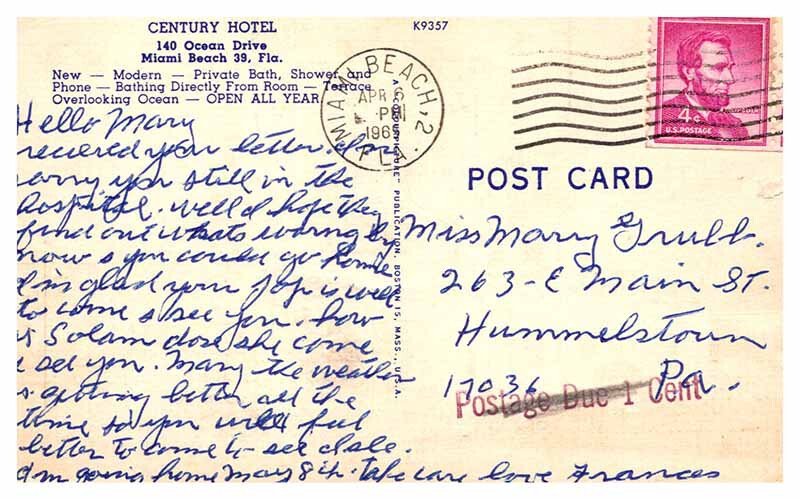 CENTURY HOTEL
140 Ocean Drive
Miami Beach 39, Fla.
New — Modern — Private Bath, Shower and
Phone — Bathing Directly From Room — Terrace
Overlooking Ocean — OPEN ALL YEAR
K9357
MIAMI BEACH, 2
APR 6
PM
FLA.
4¢
U.S. POSTAGE
Hello Mary
recieved your letter. Im
sorry you still in the
hospital. well I hope they
find out whats wrong by
now & you could go home
I'm glad your Pop is well
to come & see you. how
is Solam dose she come
& see you. Mary the weather
is getting better all the
time so you will feel
better to come to see
I'm going home May 8th. take care love Frances
PUBLICATION, BOSTON 15, MASS., U.S.A.
POST CARD
Miss Mary Grubb.
263-E Main St.
Hummelstown
17036 Pa.
Postage Due 1 Cent